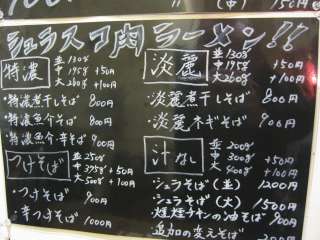 (中) 150円
シュラスコ肉ラーメン!!
特濃
並 130g
中 195g +50円
大 260g +100円
・特濃煮干しそば 800円
・特濃魚介そば 800円
・特濃魚介辛そば 900円
つけそば
並 250g
中 375g +50円
大 500g +100円
・つけそば 900円
・辛つけそば 1000円
淡麗
並 130g
中 195g +50円
大 260g +100円
・淡麗煮干しそば 800円
・淡麗ネギそば 900円
汁なし
並 200g
中 300g +50円
大 400g +100円
・シュラそば(並) 1200円
・シュラそば(大) 1500円
チキンの油そば 900円
追加の変えそば